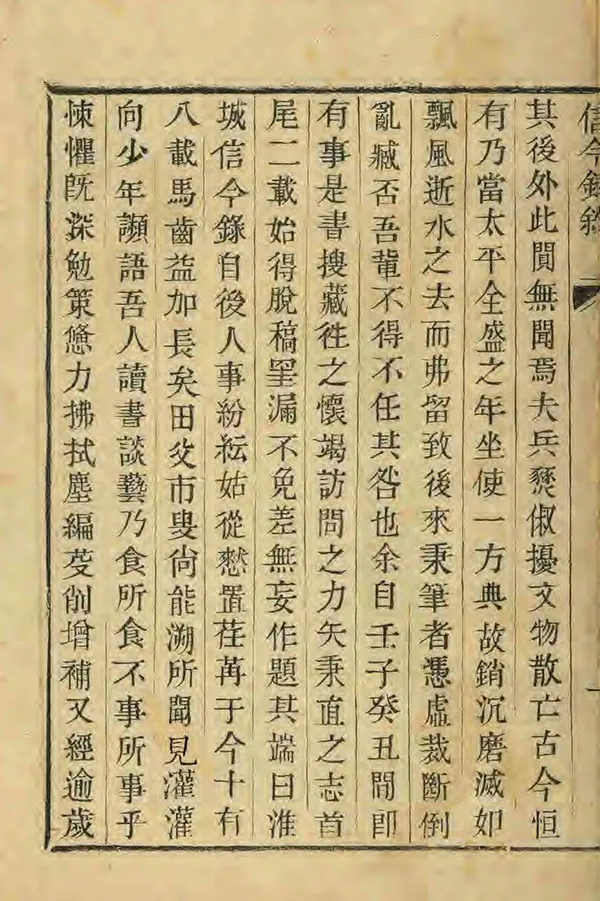 信今錄敘
其後外此閴無聞焉夫兵燹俶擾文物散亡古今恒
有乃當太平全盛之年坐使一方典故銷沉磨滅如
飄風逝水之去而弗留致後來秉筆者憑虛裁斷倒
亂臧否吾輩不得不任其咎也余自壬子癸丑間即
有事是書搜藏徃之懷竭訪問之力矢秉直之志首
尾二載始得脫稿罣漏不免差無妄作題其端曰淮
城信今錄自後人事紛紜姑從愸置荏苒于今十有
八載馬齒益加長矣田父市叟尙能溯所聞見灌灌
向少年讕語吾人讀書談藝乃食所食不事所事乎
悚懼旣深勉策憊力拂拭塵編芟削增補又經逾歲